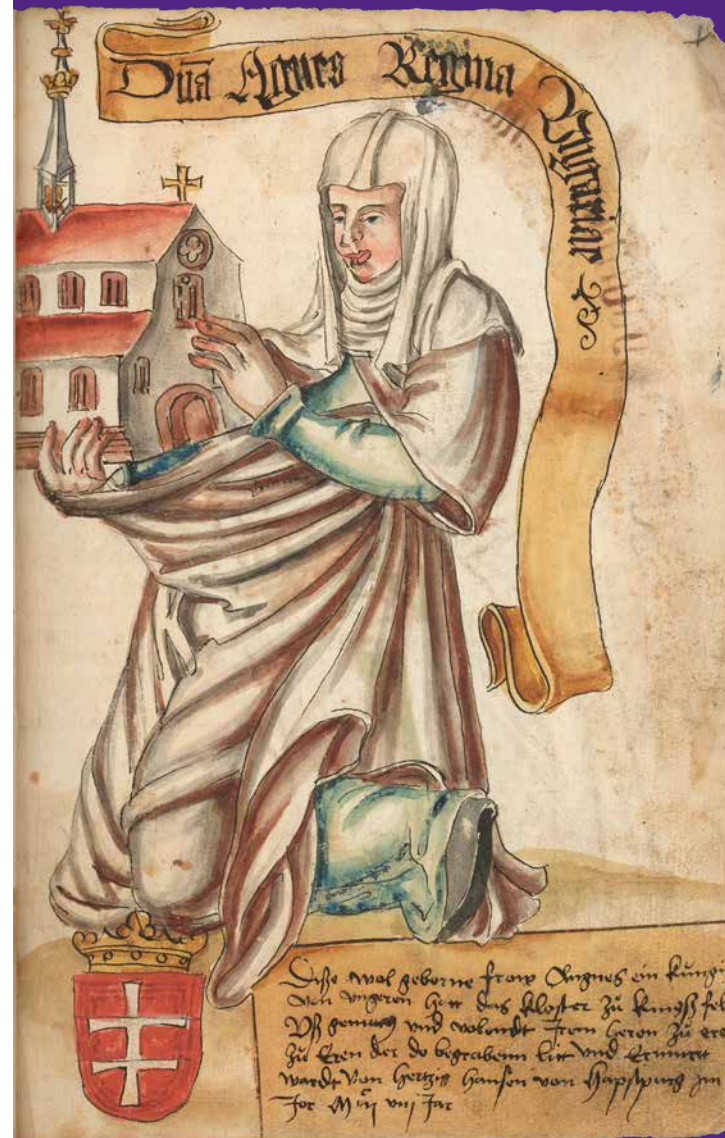 Dna Agnes Regina Ungarie etc
Dise wol geborne frow Angnes ein küngi
von vngeren hett das kloster zů küngsfel
vß gemacht vnd volendt Irem heren zů ere
zů Eren der do begraben lit vnd Ermurt
wardt von hertzig hansen von hapspurg Im
Jor
Jar